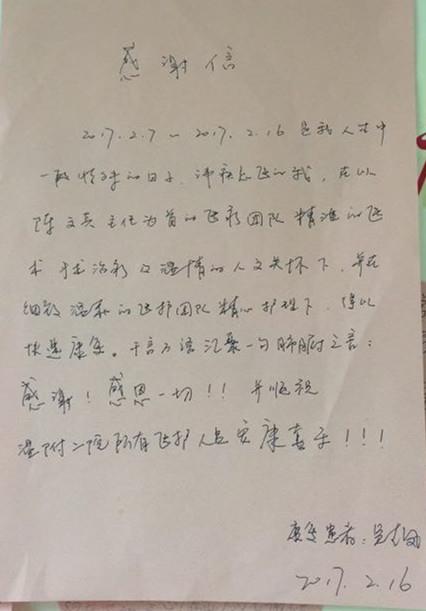 感谢信
2017.2.7～2017.2.16是我人生中
一段特殊的日子,沛疾急医的我,在以
陈文英主任为首的医疗团队精准的医
术手术治疗及温情的人文关怀下,并在
细致温柔的医护团队精心护理下,得以
快速康复。千言万语汇聚一句肺腑之言:
感谢!感恩一切!!并顺祝
温附二院所有医护人员安康喜乐!!!
康复患者:吴
2017.2.16